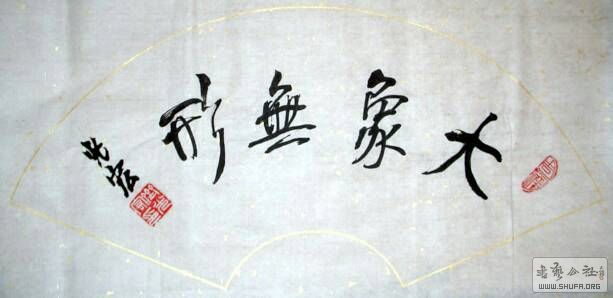 大象無形
書藝公社
WWW.SHUFA.ORG